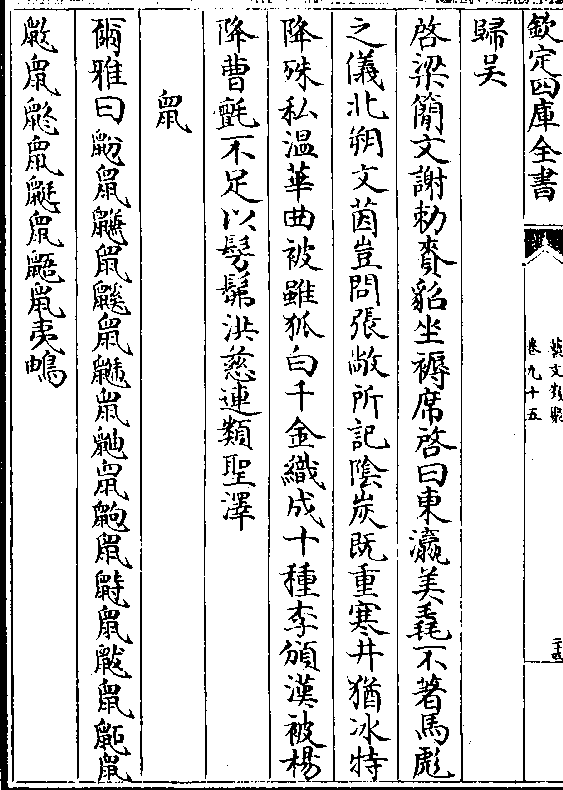 欽定四庫全書
藝文類聚
卷九十五
歸吳
啓梁簡文謝勑賚貂坐褥席啓曰東瀛美毳不著馬彪
之儀北朔文茵豈問張敞所記陰炭既重寒井猶冰特
降殊私温華曲被雖狐白千金織成十種李頒漢被楊
降曹氈不足以髣髴洪慈連類聖澤
鼠
爾雅曰鼢鼠鼸鼠鼷鼠鼶鼠鼬鼠鼩鼠鼭鼠鼣鼠鼫鼠
鼤鼠鼨鼠鼮鼠鼯鼠夷鴡